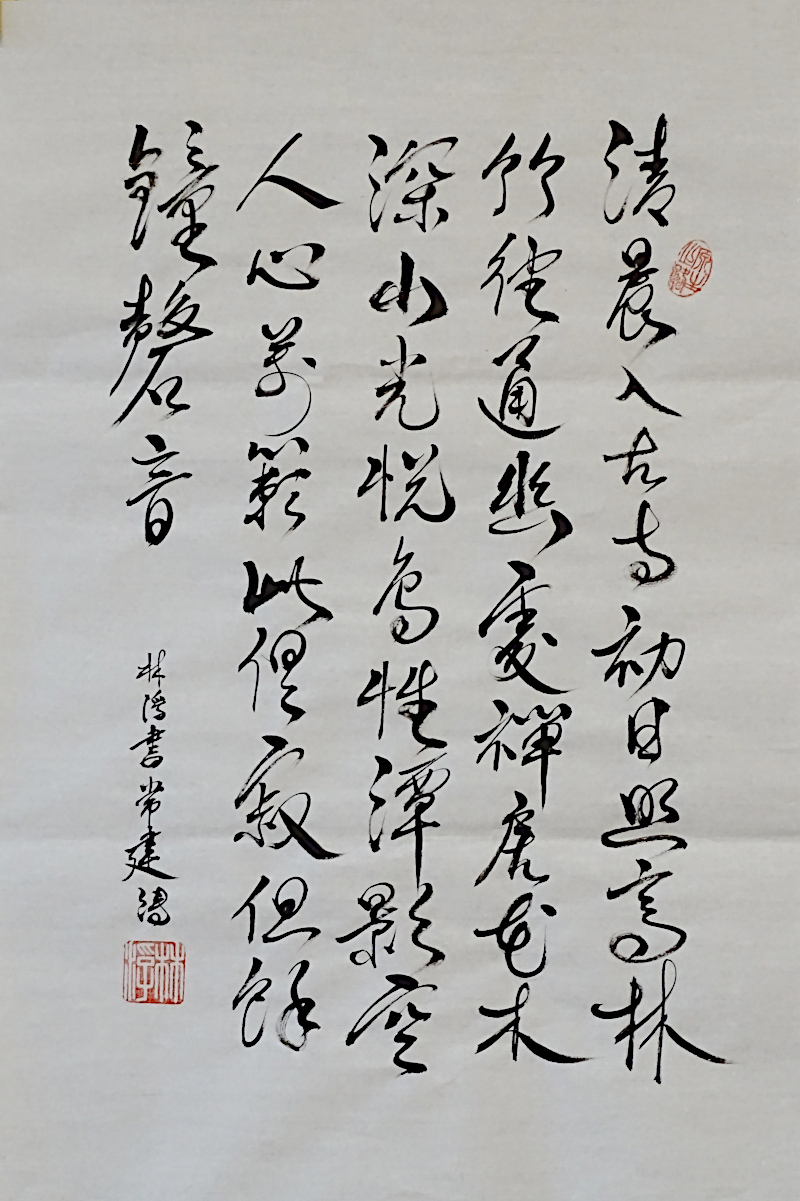 清晨入古寺初日照高林
竹徑通幽處禪房花木
深山光悅鳥性潭影空
人心萬籟此俱寂但餘
鐘磬音
林書常建詩